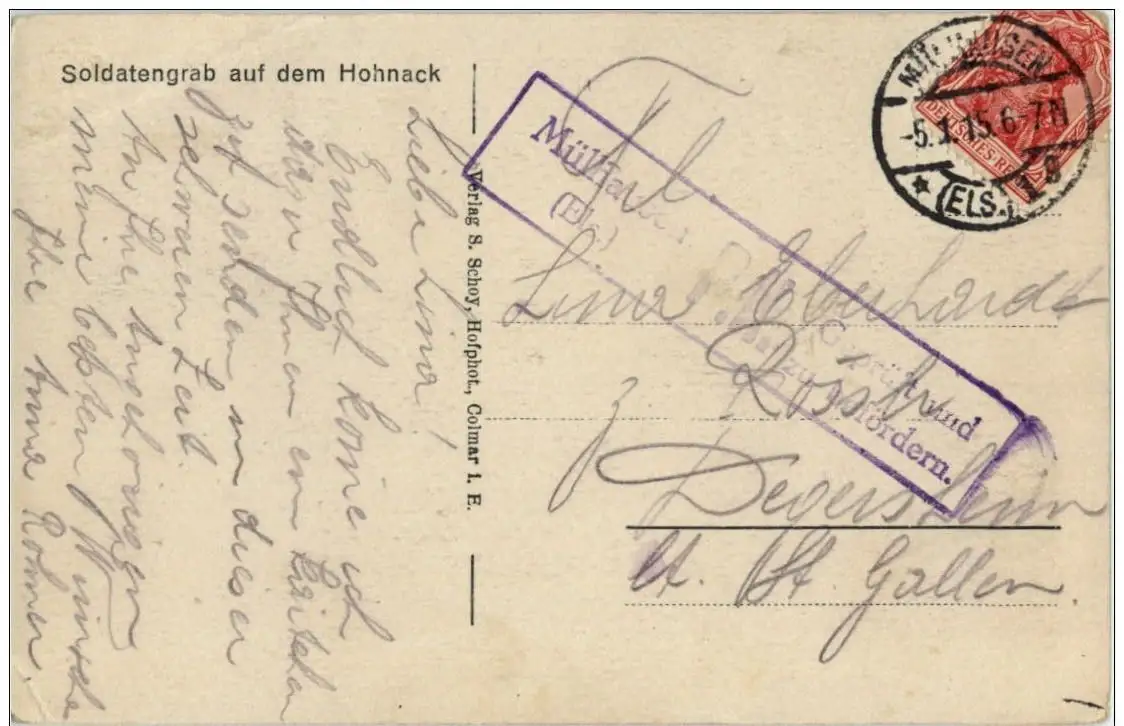 Soldatengrab auf dem Hohnack
Liebe Lina!
Endlich komme ich
dazu Ihnen ein Kärtchen
zu senden in dieser
schweren Zeit.
An Ihre Angehörigen
meine besten Wünsche
Ihre Anna Rohner
Verlag S. Schoy, Hofphot., Colmar i. E.
MÜLHAUSEN
-5.1.15.6-7N
* (ELS.) 1 g
DEUTSCHES REICH
Mülhausen
(Els.)
Geprüft und
zu befördern.
Frl.
Lina Eberhardt
z. Rössli
Degersheim
Kt. St. Gallen.